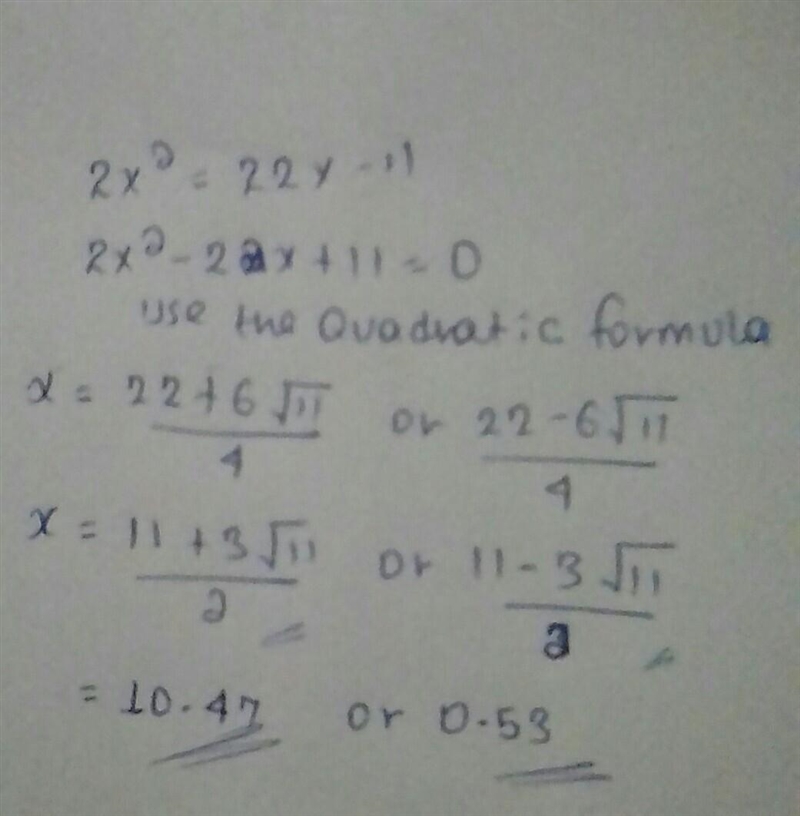 2x² = 22x - 11
2x² - 22x + 11 = 0
use the Quadratic formula
x = 22 + 6√11 / 4 or 22 - 6√11 / 4
x = 11 + 3√11 / 2 or 11 - 3√11 / 2
= 10.47 or 0.53